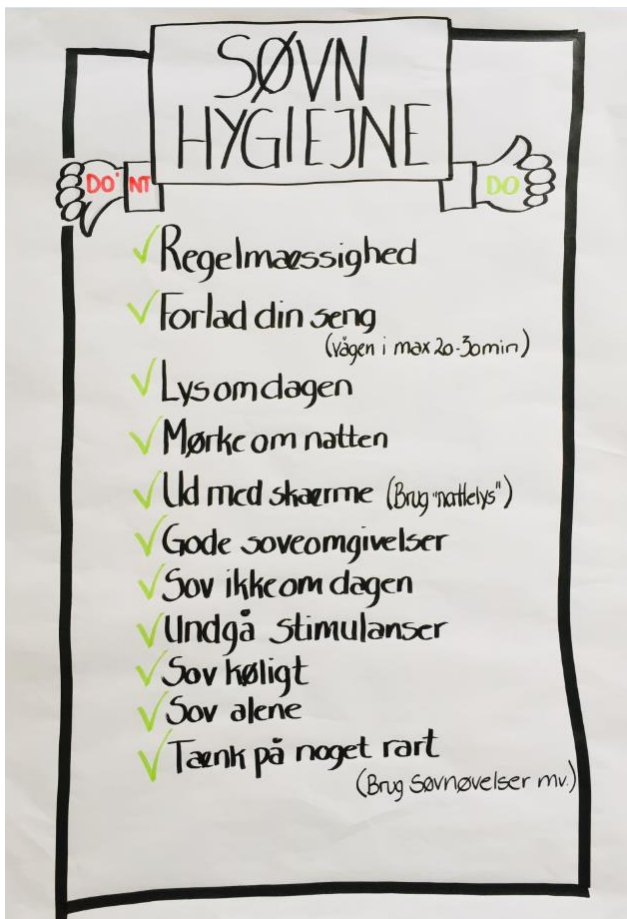 SØVN
HYGIEJNE
DO' NT
DO
Regelmæssighed
Forlad din seng
(vågen i max 20-30min)
Lys om dagen
Mørke om natten
Ud med skærme (Brug "nattelys")
Gode soveomgivelser
Sov ikke om dagen
Undgå stimulanser
Sov køligt
Sov alene
Tænk på noget rart
(Brug Søvnøvelser mv.)